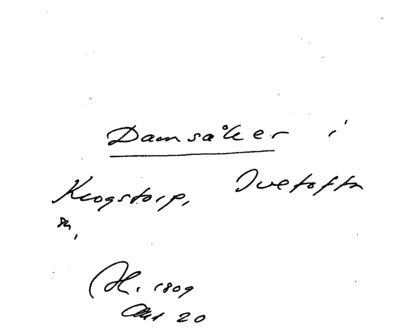 Damsåker i
Krogstorp, Ivetofta
sn.
A. 1809
Akt 20